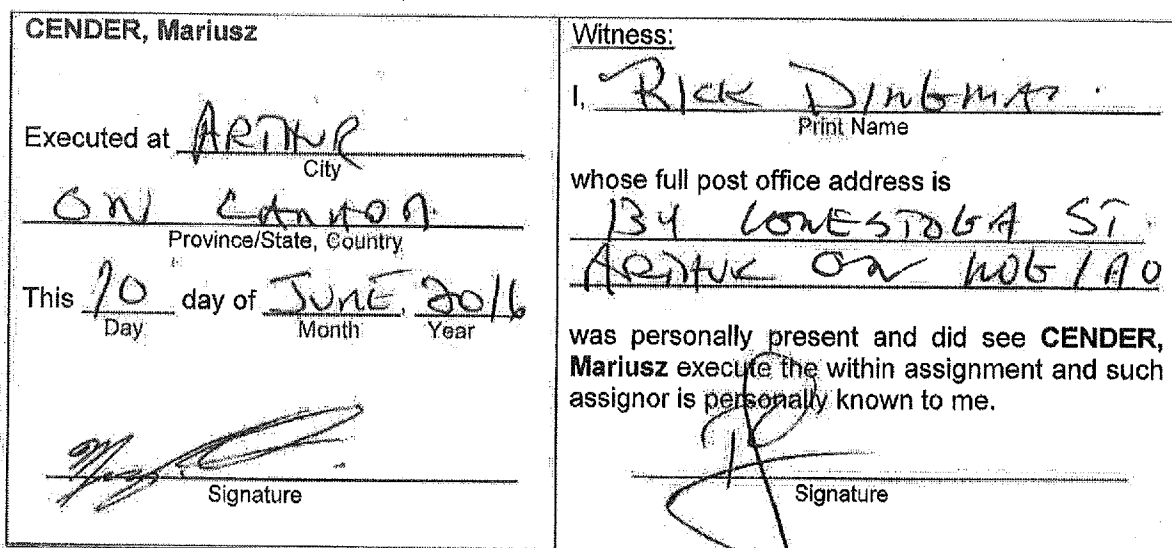 CENDER, Mariusz
Executed at ARTHUR
City
ON CANADA
Province/State, Country
This 10 day of JUNE, 2016
Day Month Year
Signature
Witness:
I, RICK DINGMAN
Print Name
whose full post office address is
134 CONESTOGA ST.
ARTHUR ON N0G 1A0
was personally present and did see CENDER,
Mariusz execute the within assignment and such
assignor is personally known to me.
Signature